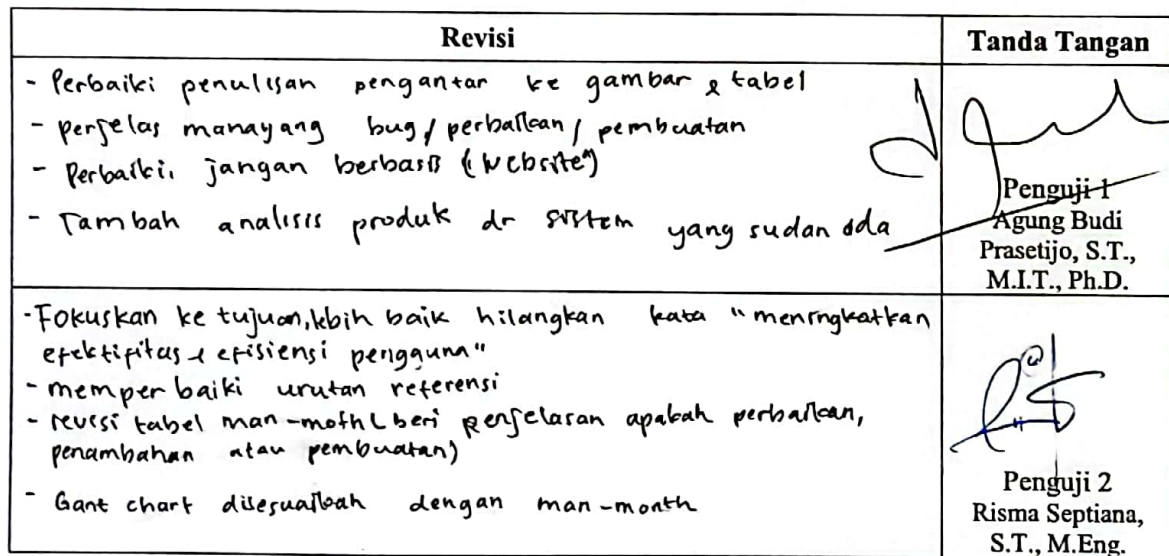 Revisi
Tanda Tangan
- Perbaiki penulisan pengantar ke gambar & tabel
- perjelas manayang bug / perbaikan / pembuatan
- Perbaiki, jangan berbasis (Website")
- Tambah analisis produk dr sistem yang sudah ada
Penguji 1
Agung Budi
Prasetijo, S.T.,
M.I.T., Ph.D.
- Fokuskan ke tujuan, lebih baik hilangkan kata "meningkatkan
efektifitas & efisiensi pengguna"
- memperbaiki urutan referensi
- revisi tabel man-moth (beri penjelasan apakah perbaikan,
penambahan atau pembuatan)
- Gant chart disesuaikan dengan man-month
Penguji 2
Risma Septiana,
S.T., M.Eng.